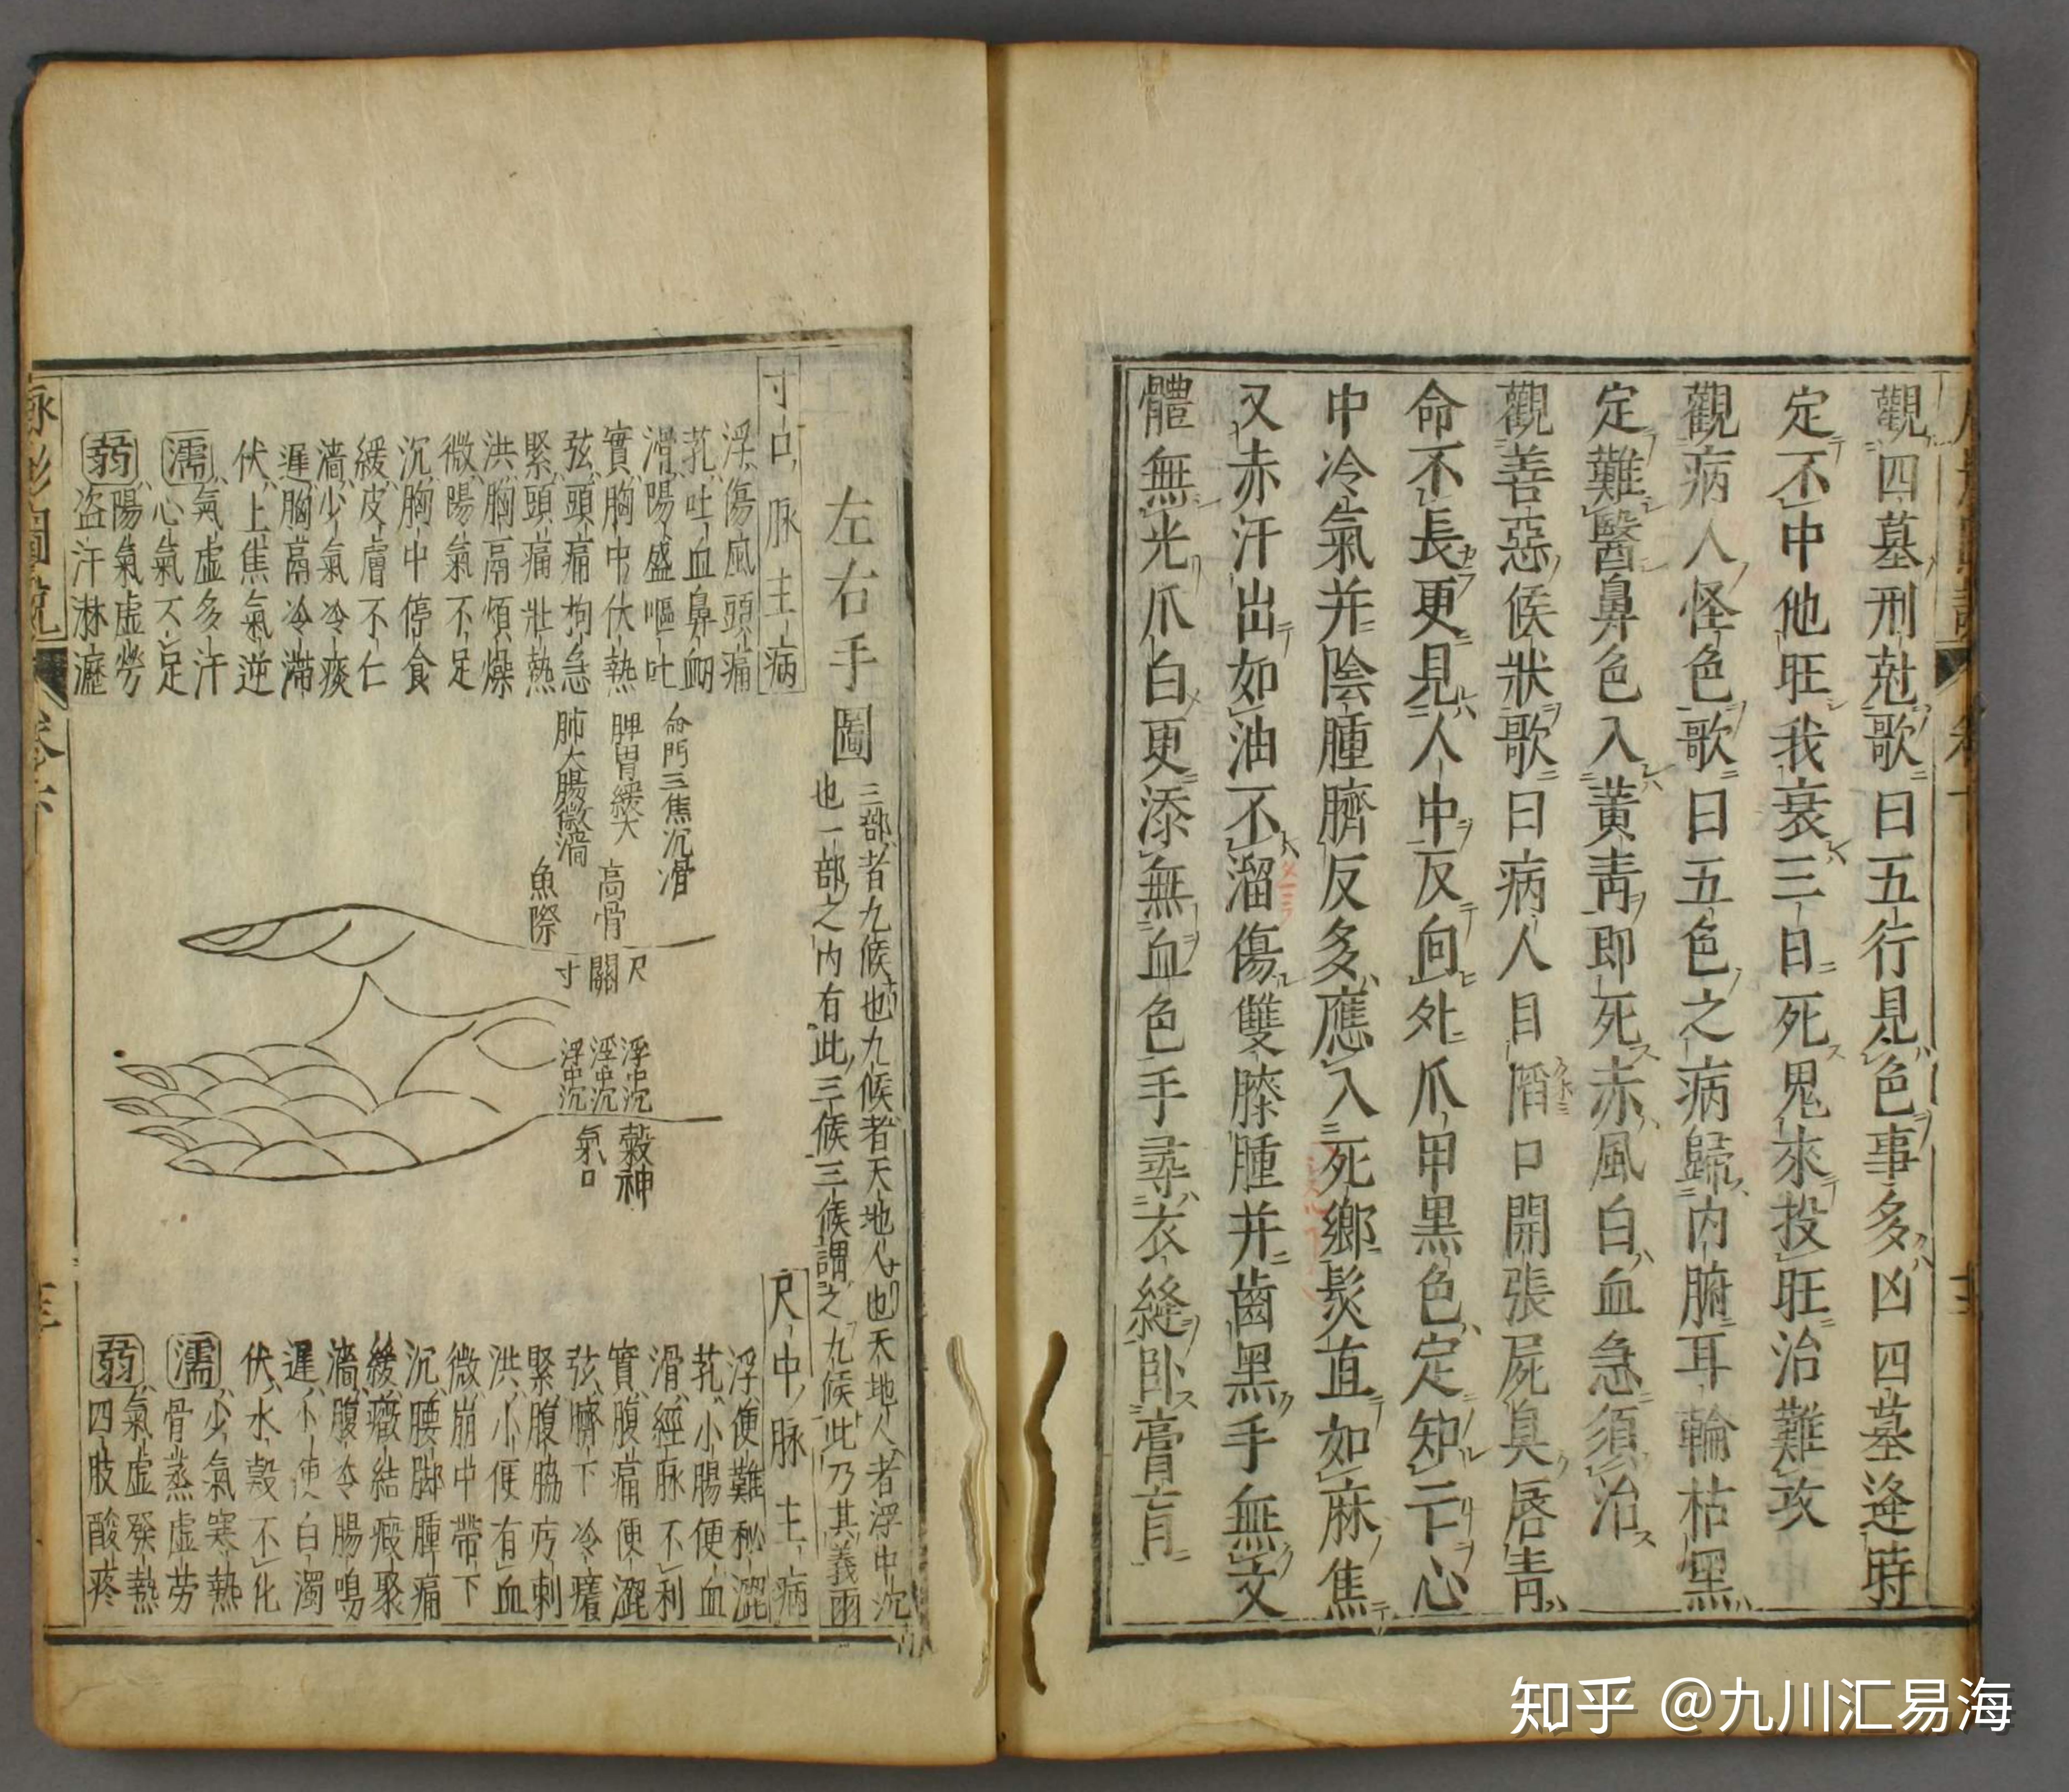 觀四墓刑尅歌曰五行見色事多凶四墓逄時
定不中他旺我衰三日死鬼來投旺治難攻
觀病人怪色歌曰五色之病歸内腑耳輪枯黑
定難醫鼻色入黃靑即死赤風白血急須治
觀善惡候狀歌曰病人目䧟口開張屍臭唇青
命不長更見人中反向外爪甲黒色定知亡心
中冷氣并陰腫臍反多應入死鄉髮直如麻焦
又赤汗出如油不溜傷雙膝腫并齒黑手無文
體無光爪白更添無血色手尋衣縫卧膏肓
左右手圖
三部者九候也九候者天地人也天地人者浮中沉
也一部之内有此三候三候謂之九候此乃其義爾
寸口脉主病
浮傷風頭痛
芤吐血鼻衂
滑陽盛嘔吐
實胸中伏熱
弦頭痛拘急
緊頭痛壯熱
洪胸膈煩燥
微陽氣不足
沉胸中停食
緩皮膚不仁
濇少氣冷痰
遲胸膈冷滯
伏上焦氣逆
濡氣虛多汗
心氣不足
弱陽氣虛勞
盗汗淋瀝
命門三焦沉滑
脾胃緩大
肺大腸微濇
高骨
魚際
尺
關
寸
浮中沉
浮中沉
浮中沉
穀神
氣口
尺中脉主病
浮便難秘澀
芤小腸便血
滑經脉不利
實腹痛便澀
弦臍下冷癢
緊腹脇疠刺
洪小便有血
微崩中帶下
沉腰脚腫痛
緩癥結瘕聚
濇腹冷腸鳴
遲小便白濁
伏水穀不化
濡少氣寒熱
骨蒸虛劳
弱氣虚發熱
四肢酸疼
脉影圖說
知乎 @九川汇易海